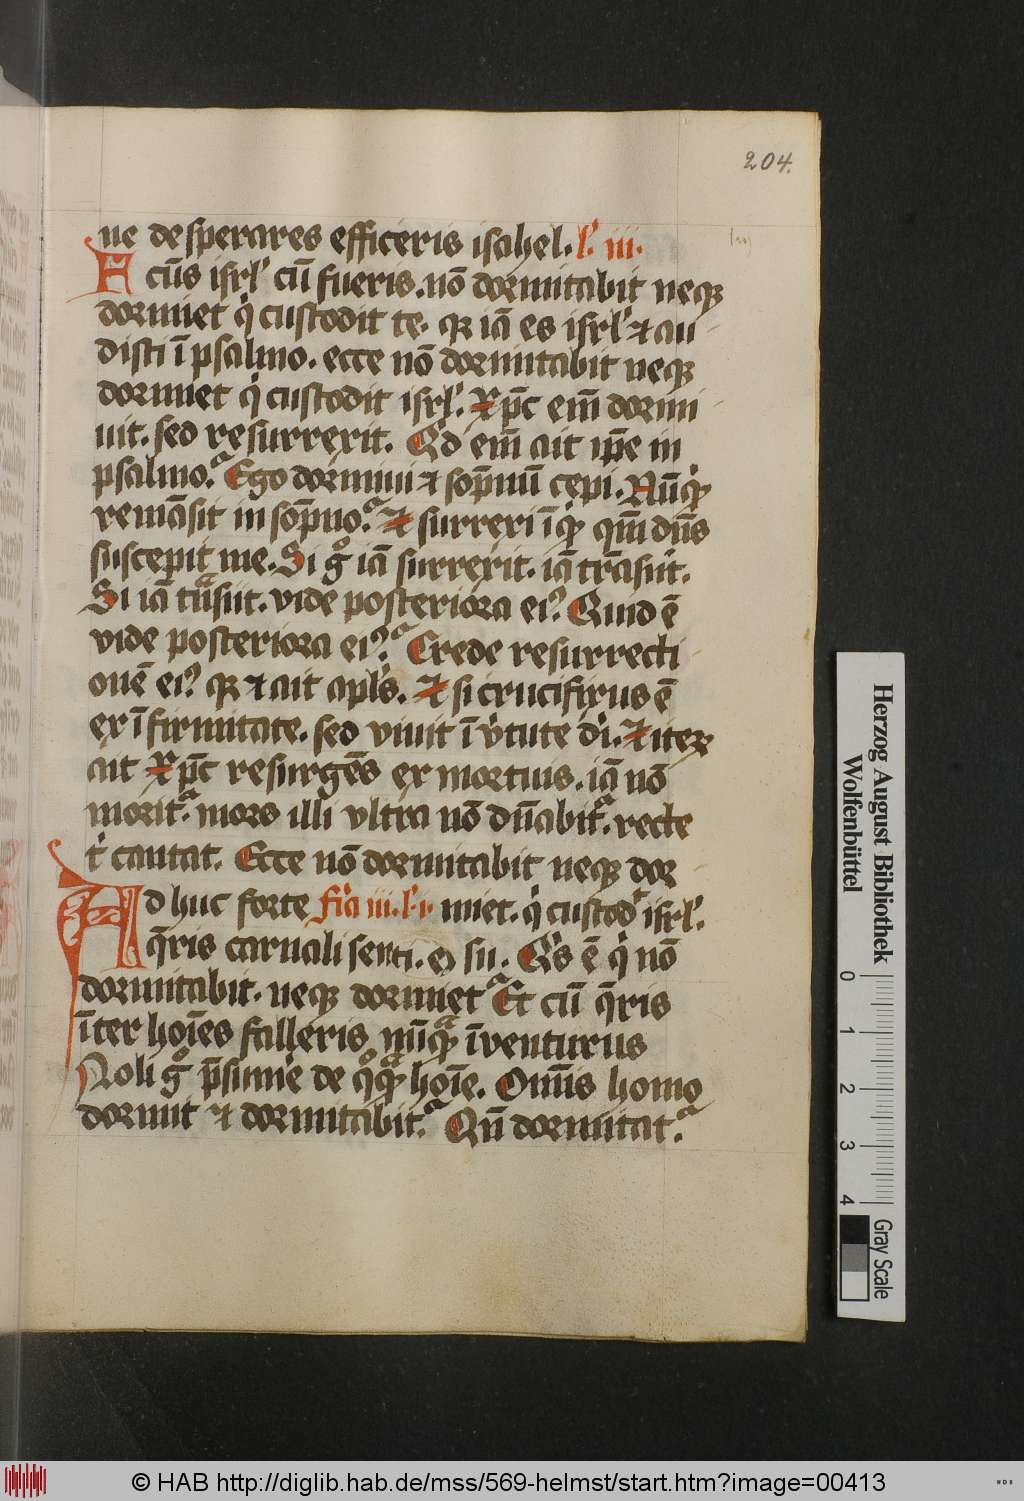 204.
ne desperares efficeris israhel. l' iii.
Fcūs isrl' cū fueris. nō dormitabit neqꝫ
dormiet q̇ custodit te. qꝛ iā es isrl' ⁊ au
disti ī psalmo. ecce nō dormitabit neqꝫ
dormiet q̇ custodit isrl'. Xp̄c em̄ dormi
uit. sed resurrexit. Qd em̄ ait ip̄e in
psalmo. Ego dormiui ⁊ sop̄nū cepi. Nūqͥꝫ
remāsit in sop̄no. ⁊ surrexi īqͥꝫ qm̄ dn̄s
suscepit me. Si gͦ iā surrexit. iā trāsiit.
Si iā trāsiit. vide posteriora eiꝰ Quid ē
vide posteriora eiꝰ. Crede resurrecti
onē eiꝰ qꝛ ⁊ ait apl's. ⁊ si crucifixus ē
ex īfirmitate. sed viuit ī v'tute di. ⁊ iteꝝ
ait Xp̄c resurgēs ex mortuis. iā nō
morit᷑. mors illi vltra nō dn̄abit᷑. recte
t' cantat. Ecce nō dormitabit neqꝫ dor
Ad huc forte fia iii. l' i. miet. q̇ custod' isrl'.
q̄ris carnali senti. Qͥs ē q̇ nō
dormitabit. neqꝫ dormiet Et cū q̄ris
īter hoīes falleris nūqͣꝫ īventurus
Noli gͦ p̄sumē de qͦqͣꝫ hoīe. Omīs homo
dormit ⁊ dormitabit. Qn̄ dormitat.
Herzog August Bibliothek
Wolfenbüttel
0 1 2 3 4
Gray Scale
© HAB http://diglib.hab.de/mss/569-helmst/start.htm?image=00413